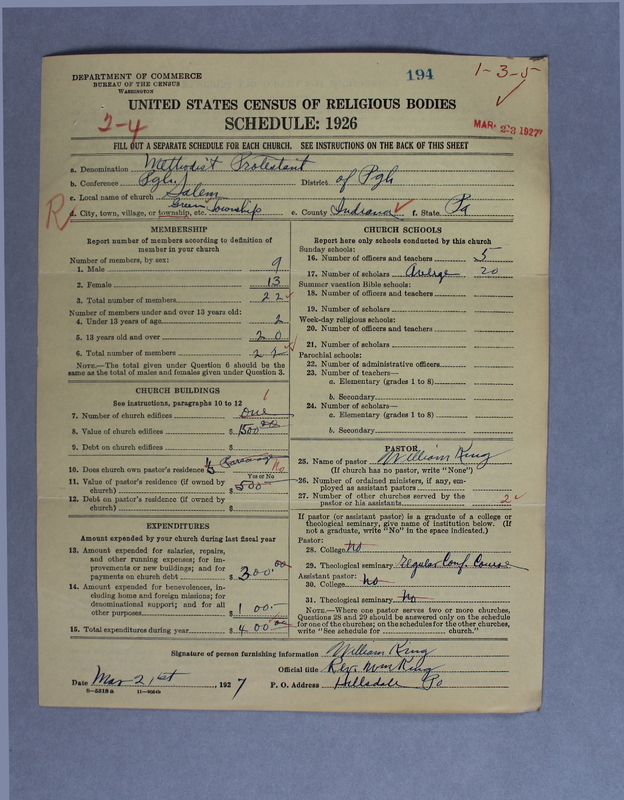 DEPARTMENT OF COMMERCE
BUREAU OF THE CENSUS
WASHINGTON
194
1-3-5
UNITED STATES CENSUS OF RELIGIOUS BODIES
2-4
SCHEDULE: 1926
MAR 23 1927
FILL OUT A SEPARATE SCHEDULE FOR EACH CHURCH. SEE INSTRUCTIONS ON THE BACK OF THIS SHEET
a. Denomination Methodist Protestant
b. Conference Pgh. District of Pgh
c. Local name of church Salem
R
d. City, town, village, or township, etc. Green Township e. County Indiana f. State Pa
MEMBERSHIP
Report number of members according to definition of
member in your church
Number of members, by sex:
1. Male 9
2. Female 13
3. Total number of members 22
Number of members under and over 13 years old:
4. Under 13 years of age 2
5. 13 years old and over 20
6. Total number of members 22
NOTE.—The total given under Question 6 should be the
same as the total of males and females given under Question 3.
CHURCH BUILDINGS
See instructions, paragraphs 10 to 12
1
7. Number of church edifices one
8. Value of church edifices $ 1500 00
9. Debt on church edifices $
10. Does church own pastor's residence? Parsonage No
Yes or No
11. Value of pastor's residence (if owned by
church) $ 500
12. Debt on pastor's residence (if owned by
church) $
EXPENDITURES
Amount expended by your church during last fiscal year
13. Amount expended for salaries, repairs,
and other running expenses; for im-
provements or new buildings; and for
payments on church debt $ 300.00
14. Amount expended for benevolences, in-
cluding home and foreign missions; for
denominational support; and for all
other purposes $ 100.
15. Total expenditures during year $ 400 00
CHURCH SCHOOLS
Report here only schools conducted by this church
Sunday schools:
16. Number of officers and teachers 5
17. Number of scholars Average 20
Summer vacation Bible schools:
18. Number of officers and teachers
19. Number of scholars
Week-day religious schools:
20. Number of officers and teachers
21. Number of scholars
Parochial schools:
22. Number of administrative officers
23. Number of teachers—
a. Elementary (grades 1 to 8)
b. Secondary
24. Number of scholars—
a. Elementary (grades 1 to 8)
b. Secondary
PASTOR
25. Name of pastor William King
(If church has no pastor, write "None")
26. Number of ordained ministers, if any, em-
ployed as assistant pastors
27. Number of other churches served by the
pastor or his assistants 2
If pastor (or assistant pastor) is a graduate of a college or
theological seminary, give name of institution below. (If
not a graduate, write "No" in the space indicated.)
Pastor:
28. College no
29. Theological seminary regular Conf. Course
Assistant pastor:
30. College no
31. Theological seminary no
NOTE.—Where one pastor serves two or more churches,
Questions 28 and 29 should be answered only on the schedule
for one of the churches; on the schedules for the other churches,
write "See schedule for church."
Signature of person furnishing information William King
Official title Rev. Wm King
Date Mar 21st, 1927 P. O. Address Hillsdale Pa
8-5318a 11-9054b